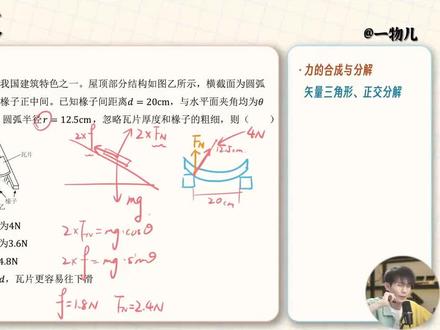 @一物儿
我国建筑特色之一。屋顶部分结构如图乙所示,横截面为圆弧
椽子正中间。已知椽子间距离d = 20cm,与水平面夹角均为θ
圆弧半径r = 12.5cm,忽略瓦片厚度和椽子的粗细,则( )
·力的合成与分解
矢量三角形、正交分解
2×f
2×F_N
F_N
4N
12.5cm
瓦片
椽子
乙
mg
20cm
为4N
2×F_N = mg·cosθ
为3.6N
2×f = mg·sinθ
4.8N
d,瓦片更容易往下滑
f=1.8N F_N=2.4N